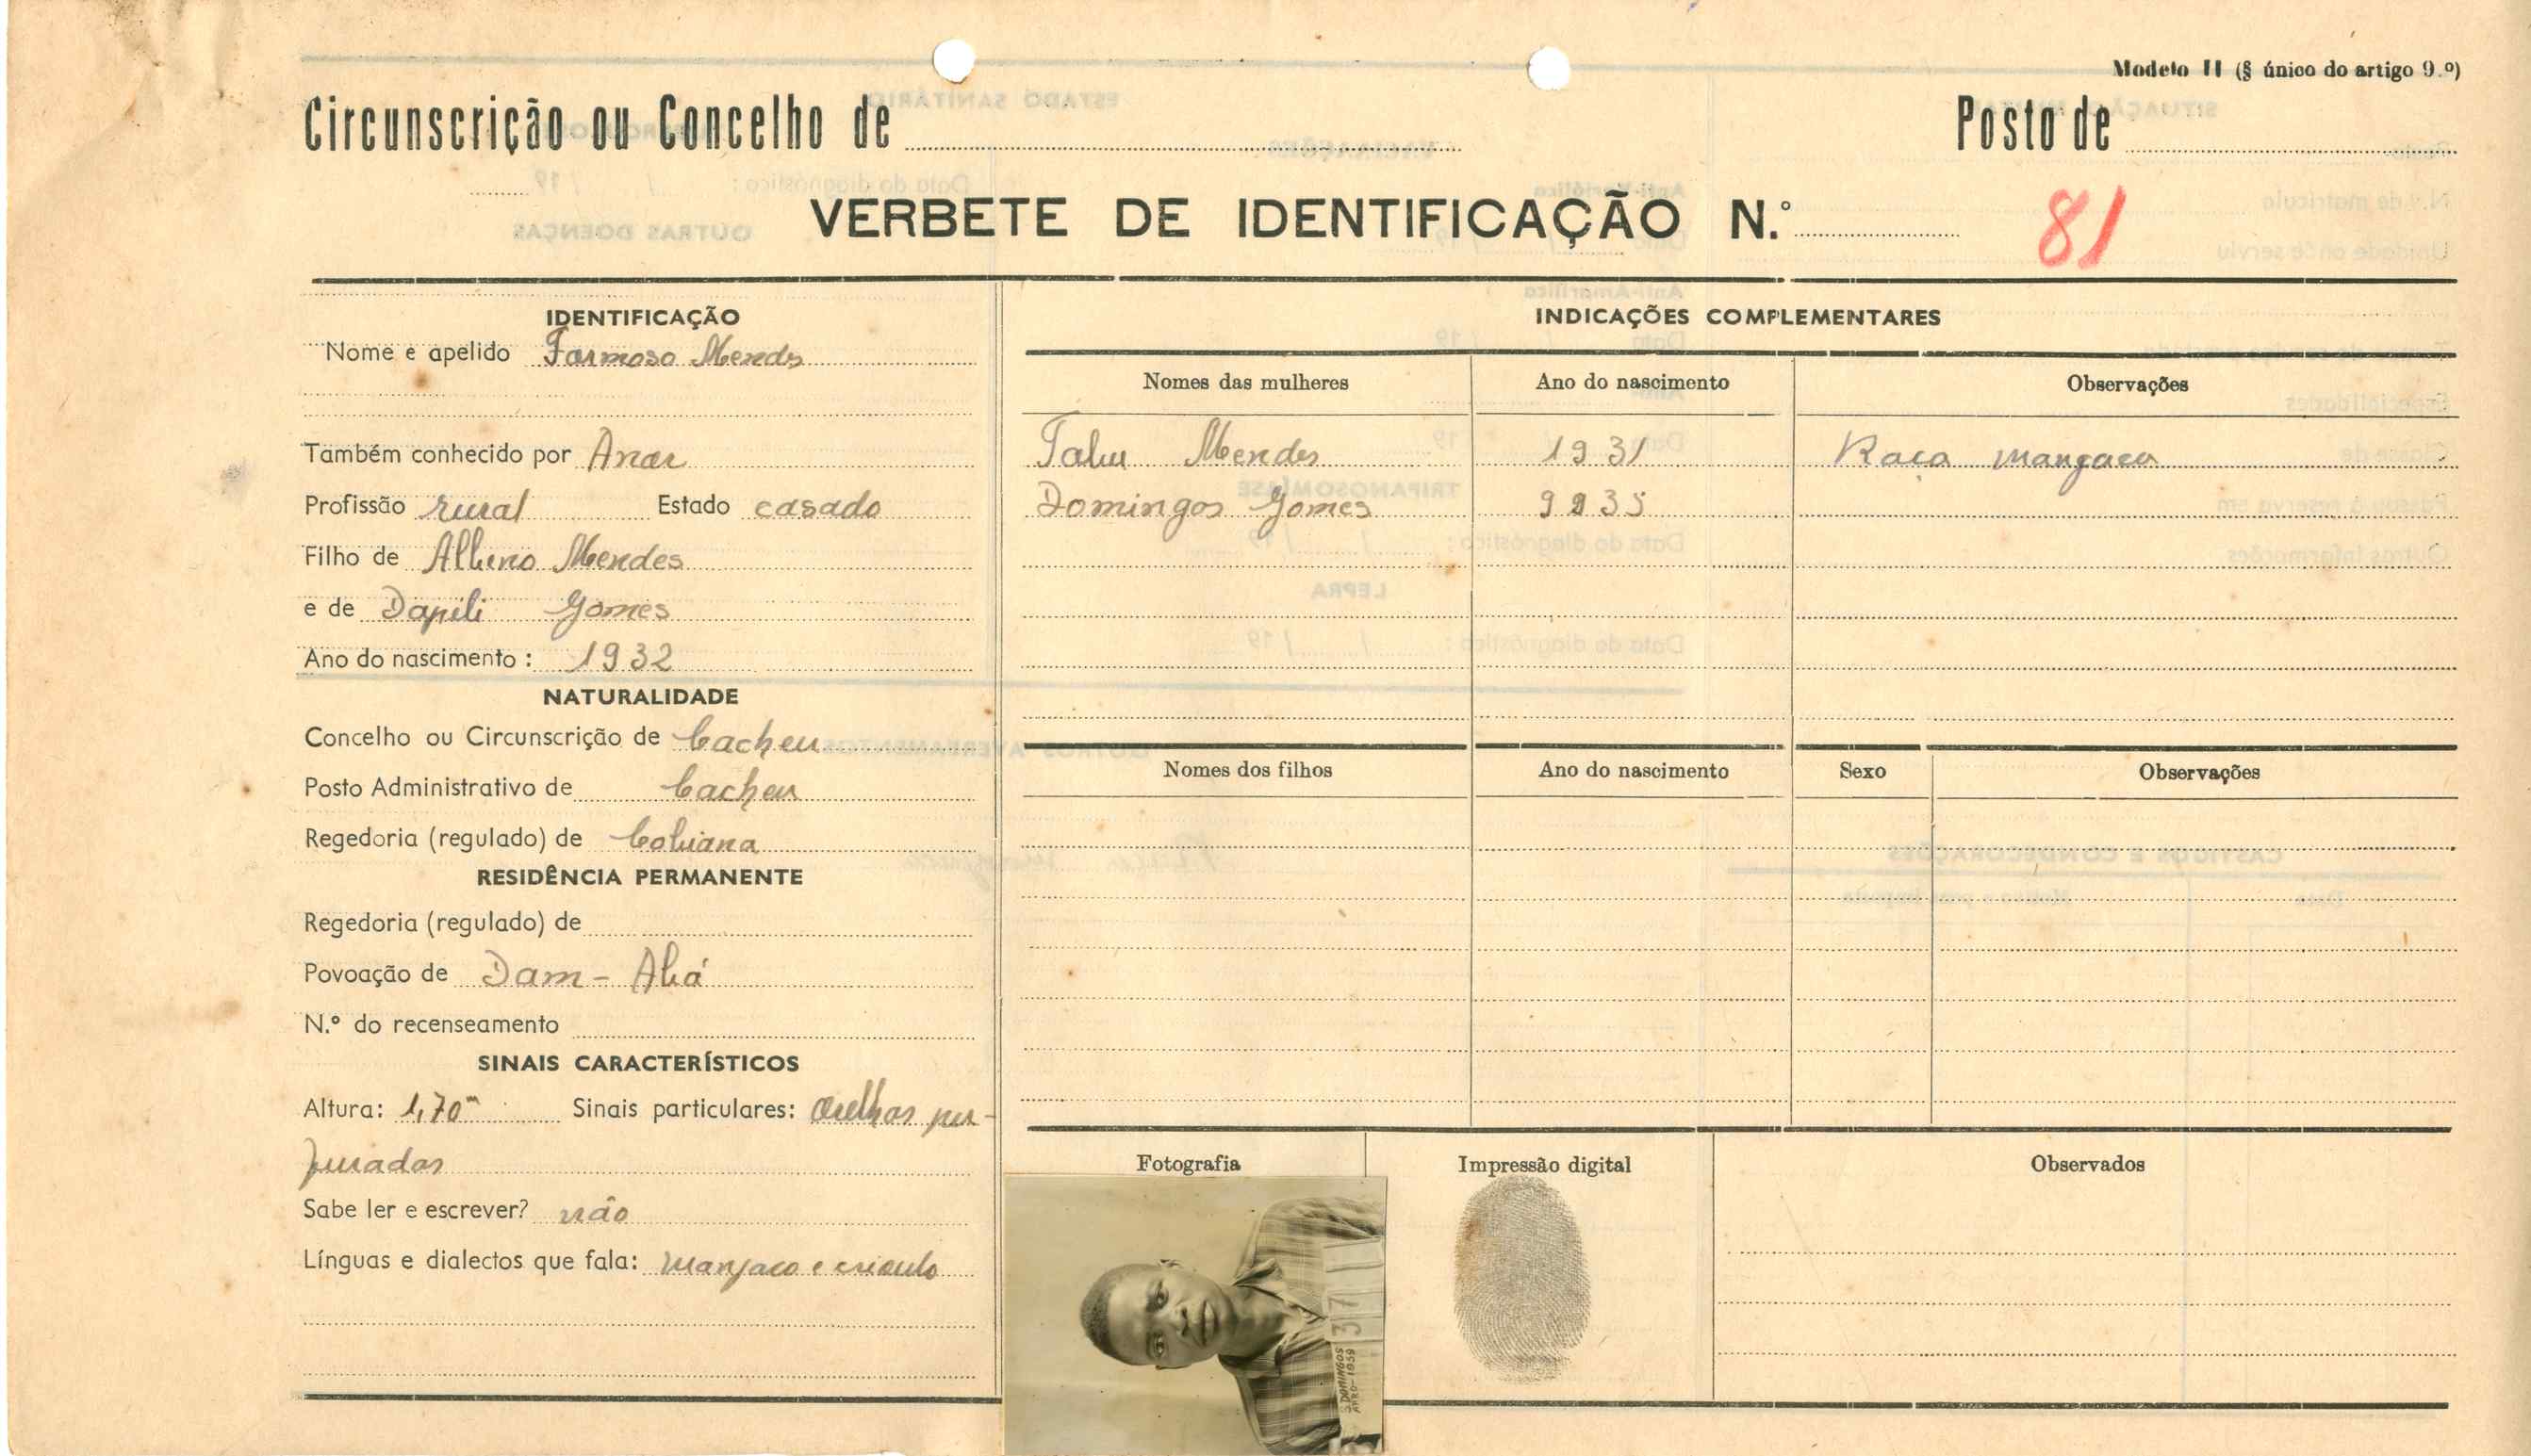 Modelo II (§ único do artigo 9.º)
Circunscrição ou Concelho de
Posto de
VERBETE DE IDENTIFICAÇÃO N.º 81
IDENTIFICAÇÃO
Nome e apelido Formoso Mendes
Também conhecido por Anar
Profissão rural Estado casado
Filho de Albino Mendes
e de Dapili Gomes
Ano do nascimento: 1932
NATURALIDADE
Concelho ou Circunscrição de Cacheu
Posto Administrativo de Cacheu
Regedoria (regulado) de Cobiana
RESIDÊNCIA PERMANENTE
Regedoria (regulado) de
Povoação de Dam-Abá
N.º do recenseamento
SINAIS CARACTERÍSTICOS
Altura: 1,70m Sinais particulares: orelhas per-
furadas
Sabe ler e escrever? não
Línguas e dialectos que fala: manjaco e crioulo
INDICAÇÕES COMPLEMENTARES
Nomes das mulheres Ano do nascimento Observações
Mendes 1931 Raça
Domingas Gomes
Nomes dos filhos Ano do nascimento Sexo Observações
Fotografia Impressão digital Observados
37
S DOMINGOS
1959